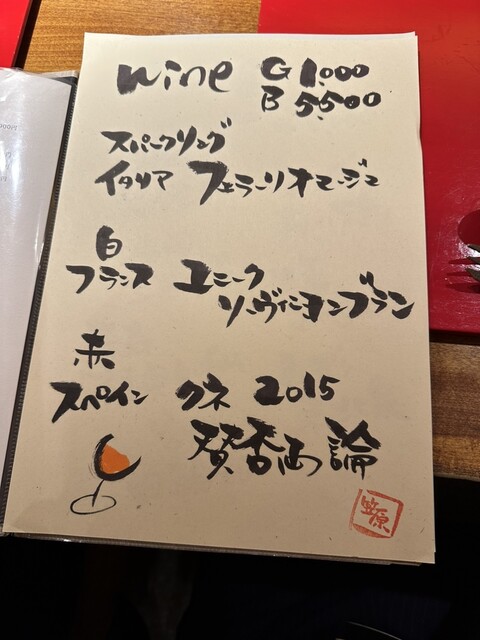 wine G 1.000
B 5.500
スパークリング
イタリア フェラーリ オマージュ
白
フランス ユニーク
ソーヴィニヨンブラン
赤
スペイン クネ 2015
賛否両論
笠原